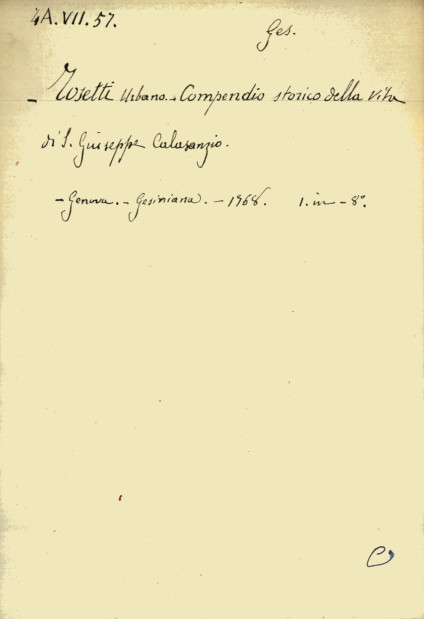 4A.VII.57.
Ges.
- Tosetti Urbano. - Compendio storico della vita
di S. Giuseppe Calasanzio.
- Genova. - Gesiniana. - 1968. 1. in - 8°.